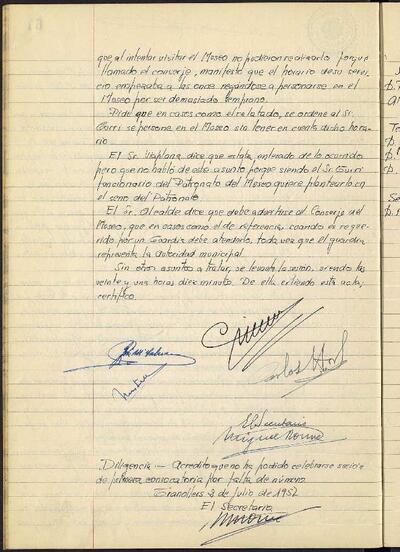 que al intentar visitar el Museo no pudieron realizarlo porque
llamado el conserje, manifestó que el horario de su servi-
cio empezaba a las once negándose a personarse en el
Museo por ser demasiado temprano.
Pide que en casos como el relatado, se ordene al Sr.
Garri se persone en el Museo sin tener en cuenta dicho hora-
rio
El Sr. Vilaplana, dice que estaba enterado de lo ocurrido
pero que no habló de este asunto porque siendo el Sr. Garri
funcionario del Patronato del Museo quiere plantearlo en
el seno del Patronato
El Sr. Alcalde dice que debe advertirse al Conserje del
Museo, que en casos como el de referencia, cuando es reque-
rido por un Guardia debe atenderlo, toda vez que el guardia
representa la autoridad municipal.
Sin otros asuntos a tratar, se levanta la sesión, siendo las
veinte y una horas diez minutos. De ella extiendo esta acta,
certifico.
El Secretario
Diligencia — Acredito que no ha podido celebrarse sesión
de primera convocatoria por falta de número.
Granollers 2 de julio de 1952
El Secretario